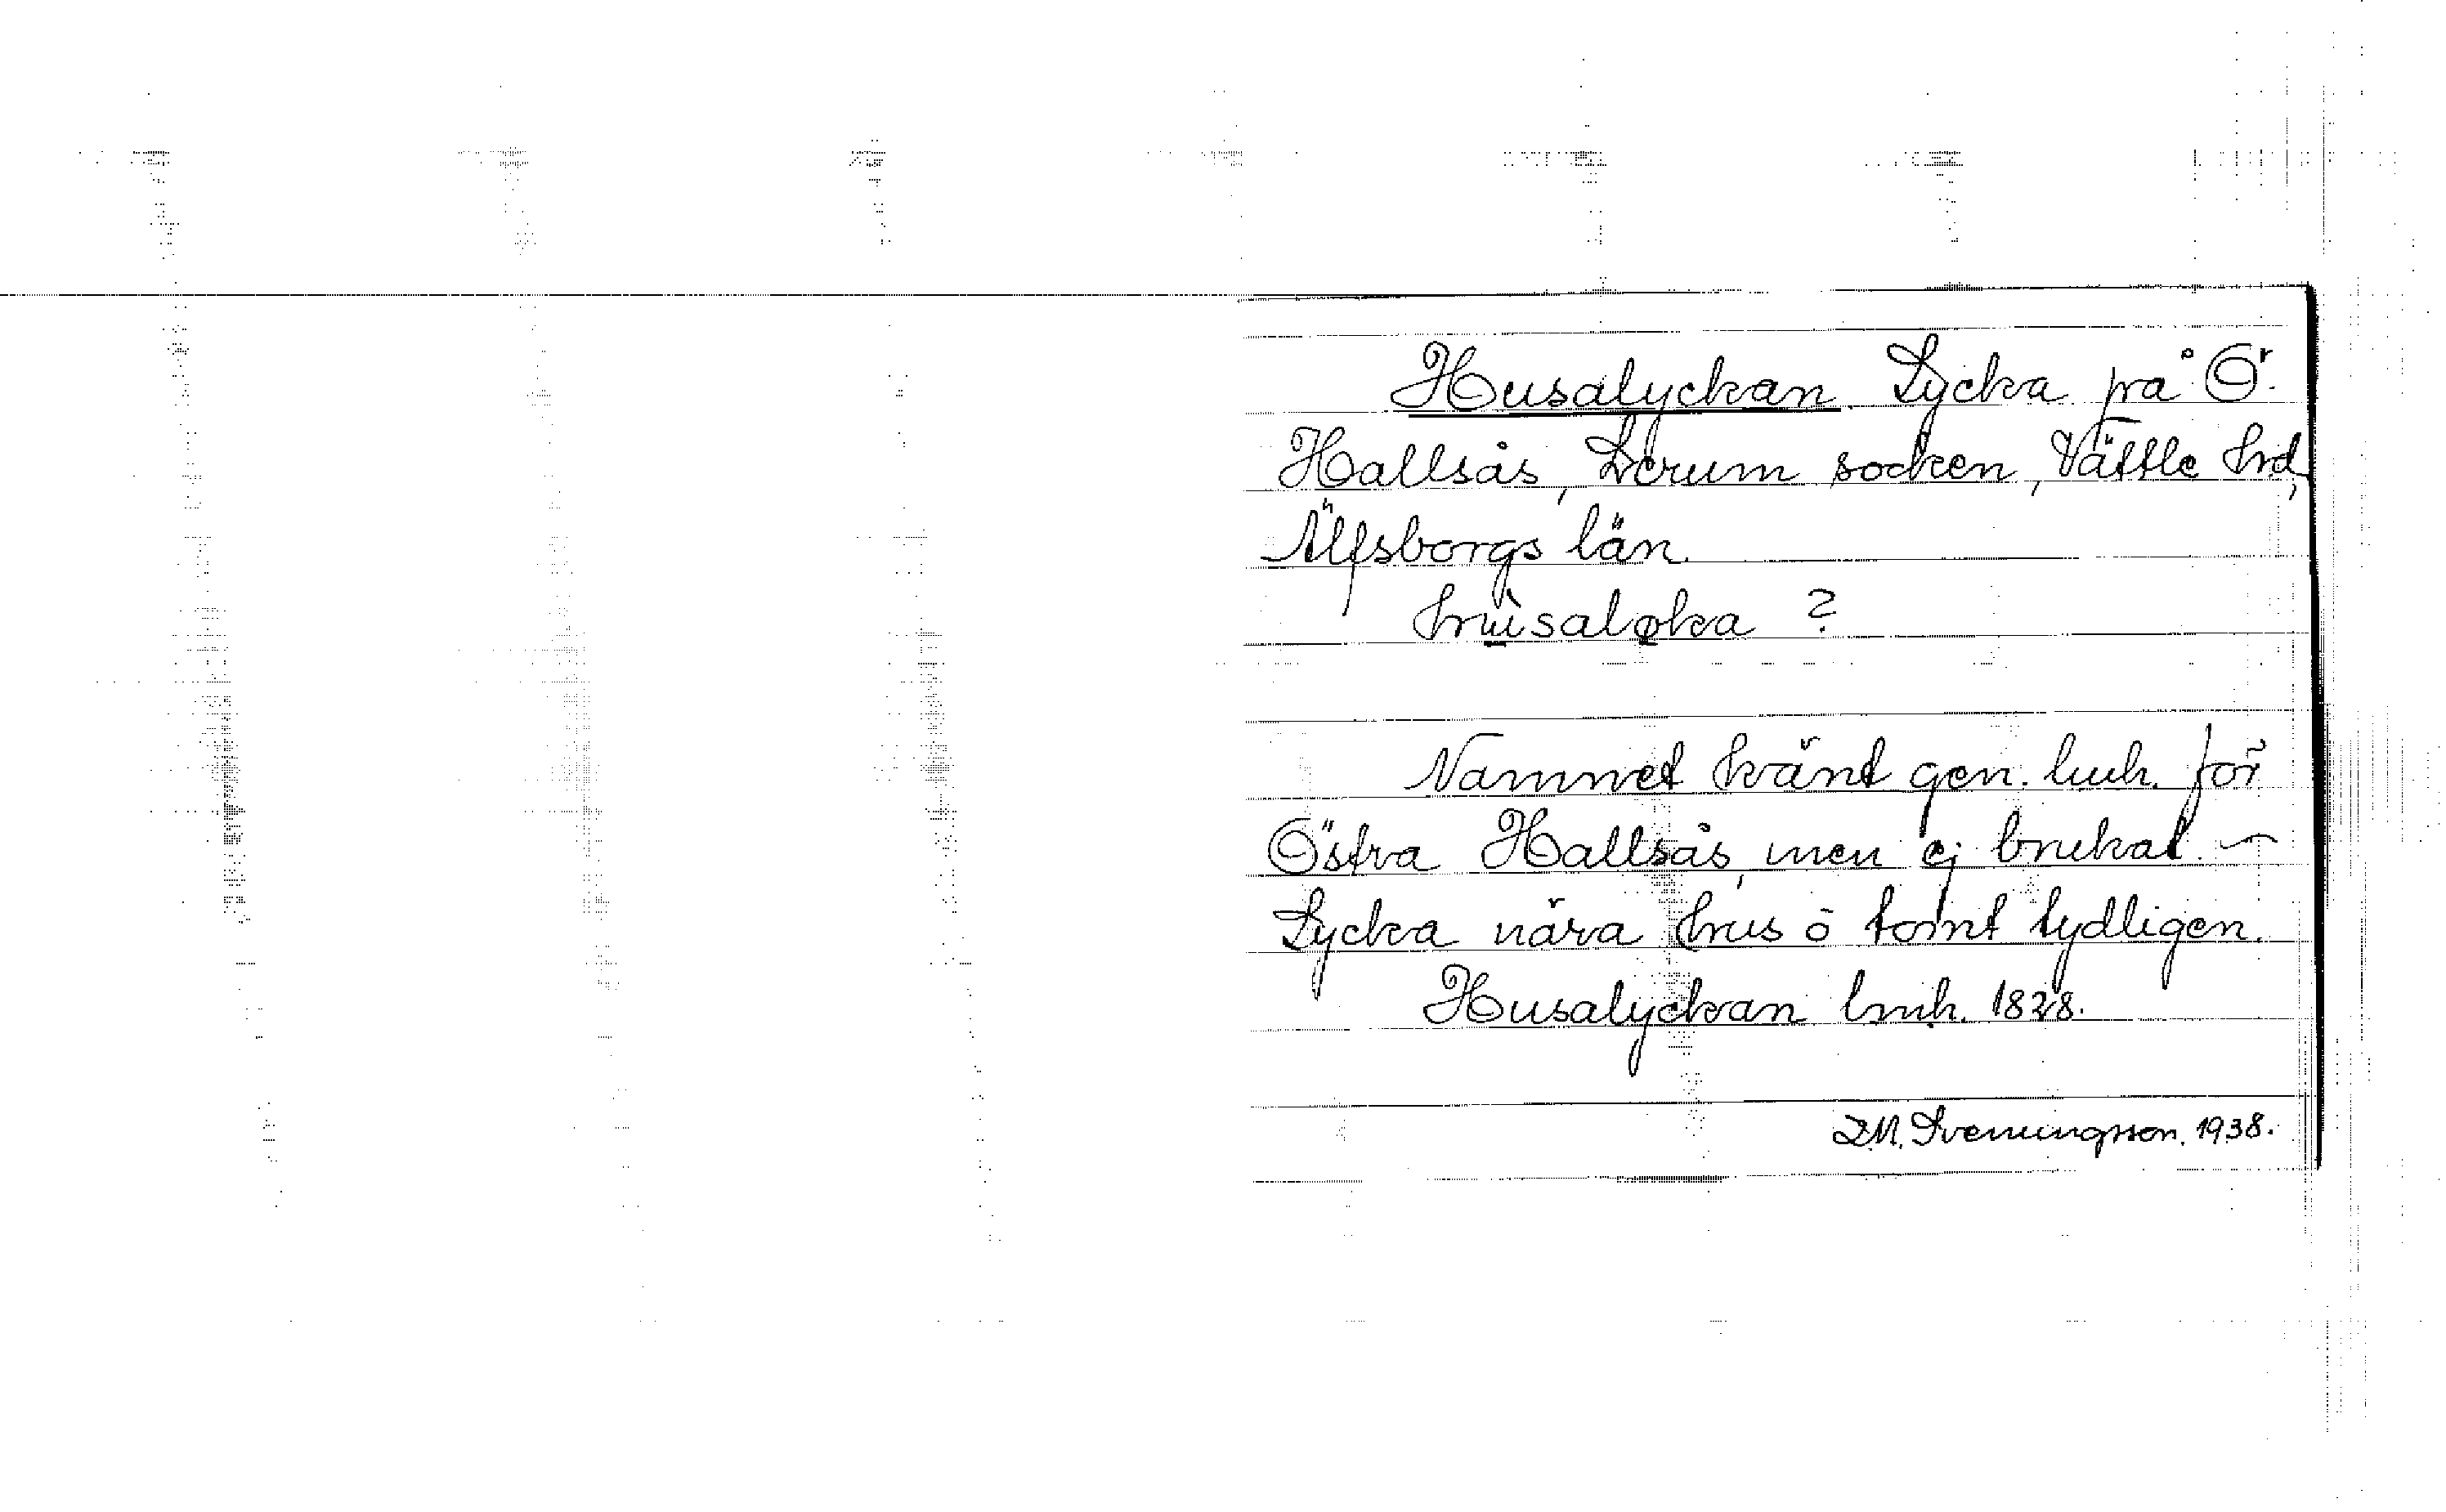 Husalyckan. Lycka på Ö.
Hallsås, Lerum socken, Vättle hrd,
Älfsborgs län.
hùsaløka ?
Namnet känt gen. lmh. för
Östra Hallsås, men ej brukat. —
Lycka nära hus o tomt tydligen.
Husalyckan lmh. 1828.
Sveningsson. 1938.